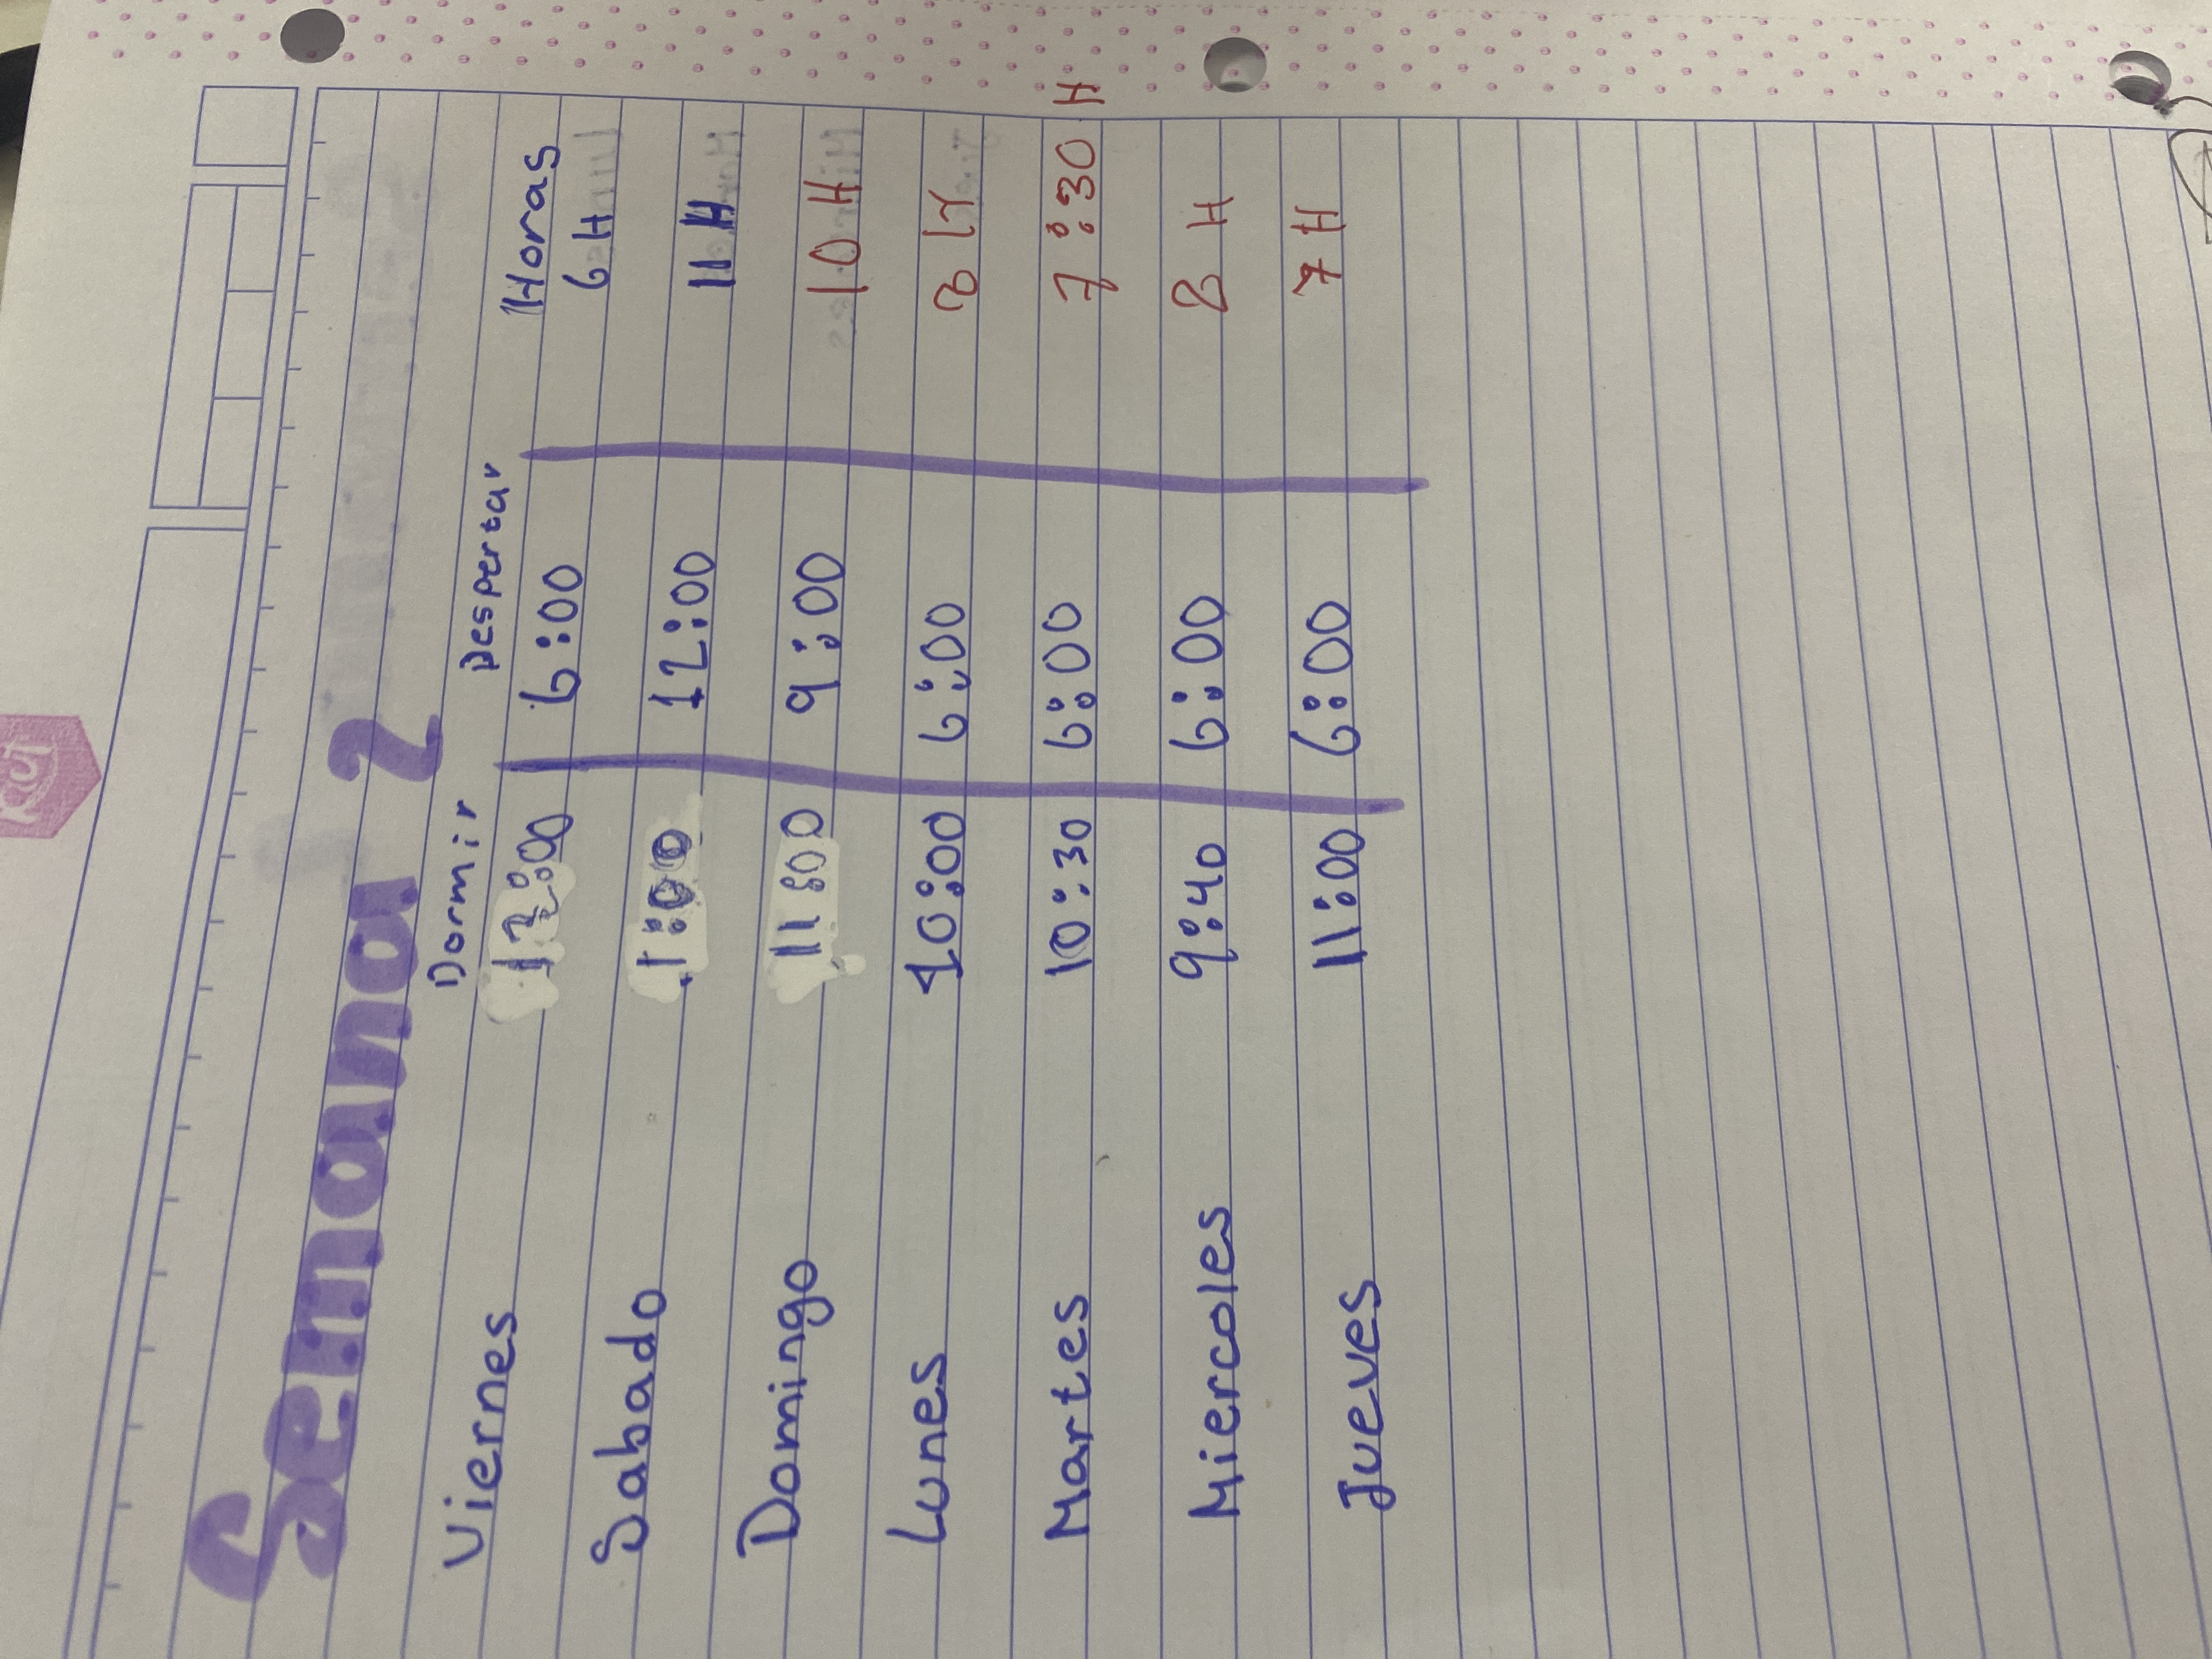 Semana 2
Dormir Despertar Horas
Viernes 12:00 6:00 6 H
Sabado 1:00 12:00 11 H
Domingo 11:00 9:00 10 H
Lunes 10:00 6:00 8 H
Martes 10:30 6:00 7:30 H
Miercoles 9:40 6:00 8 H
Jueves 11:00 6:00 7 H